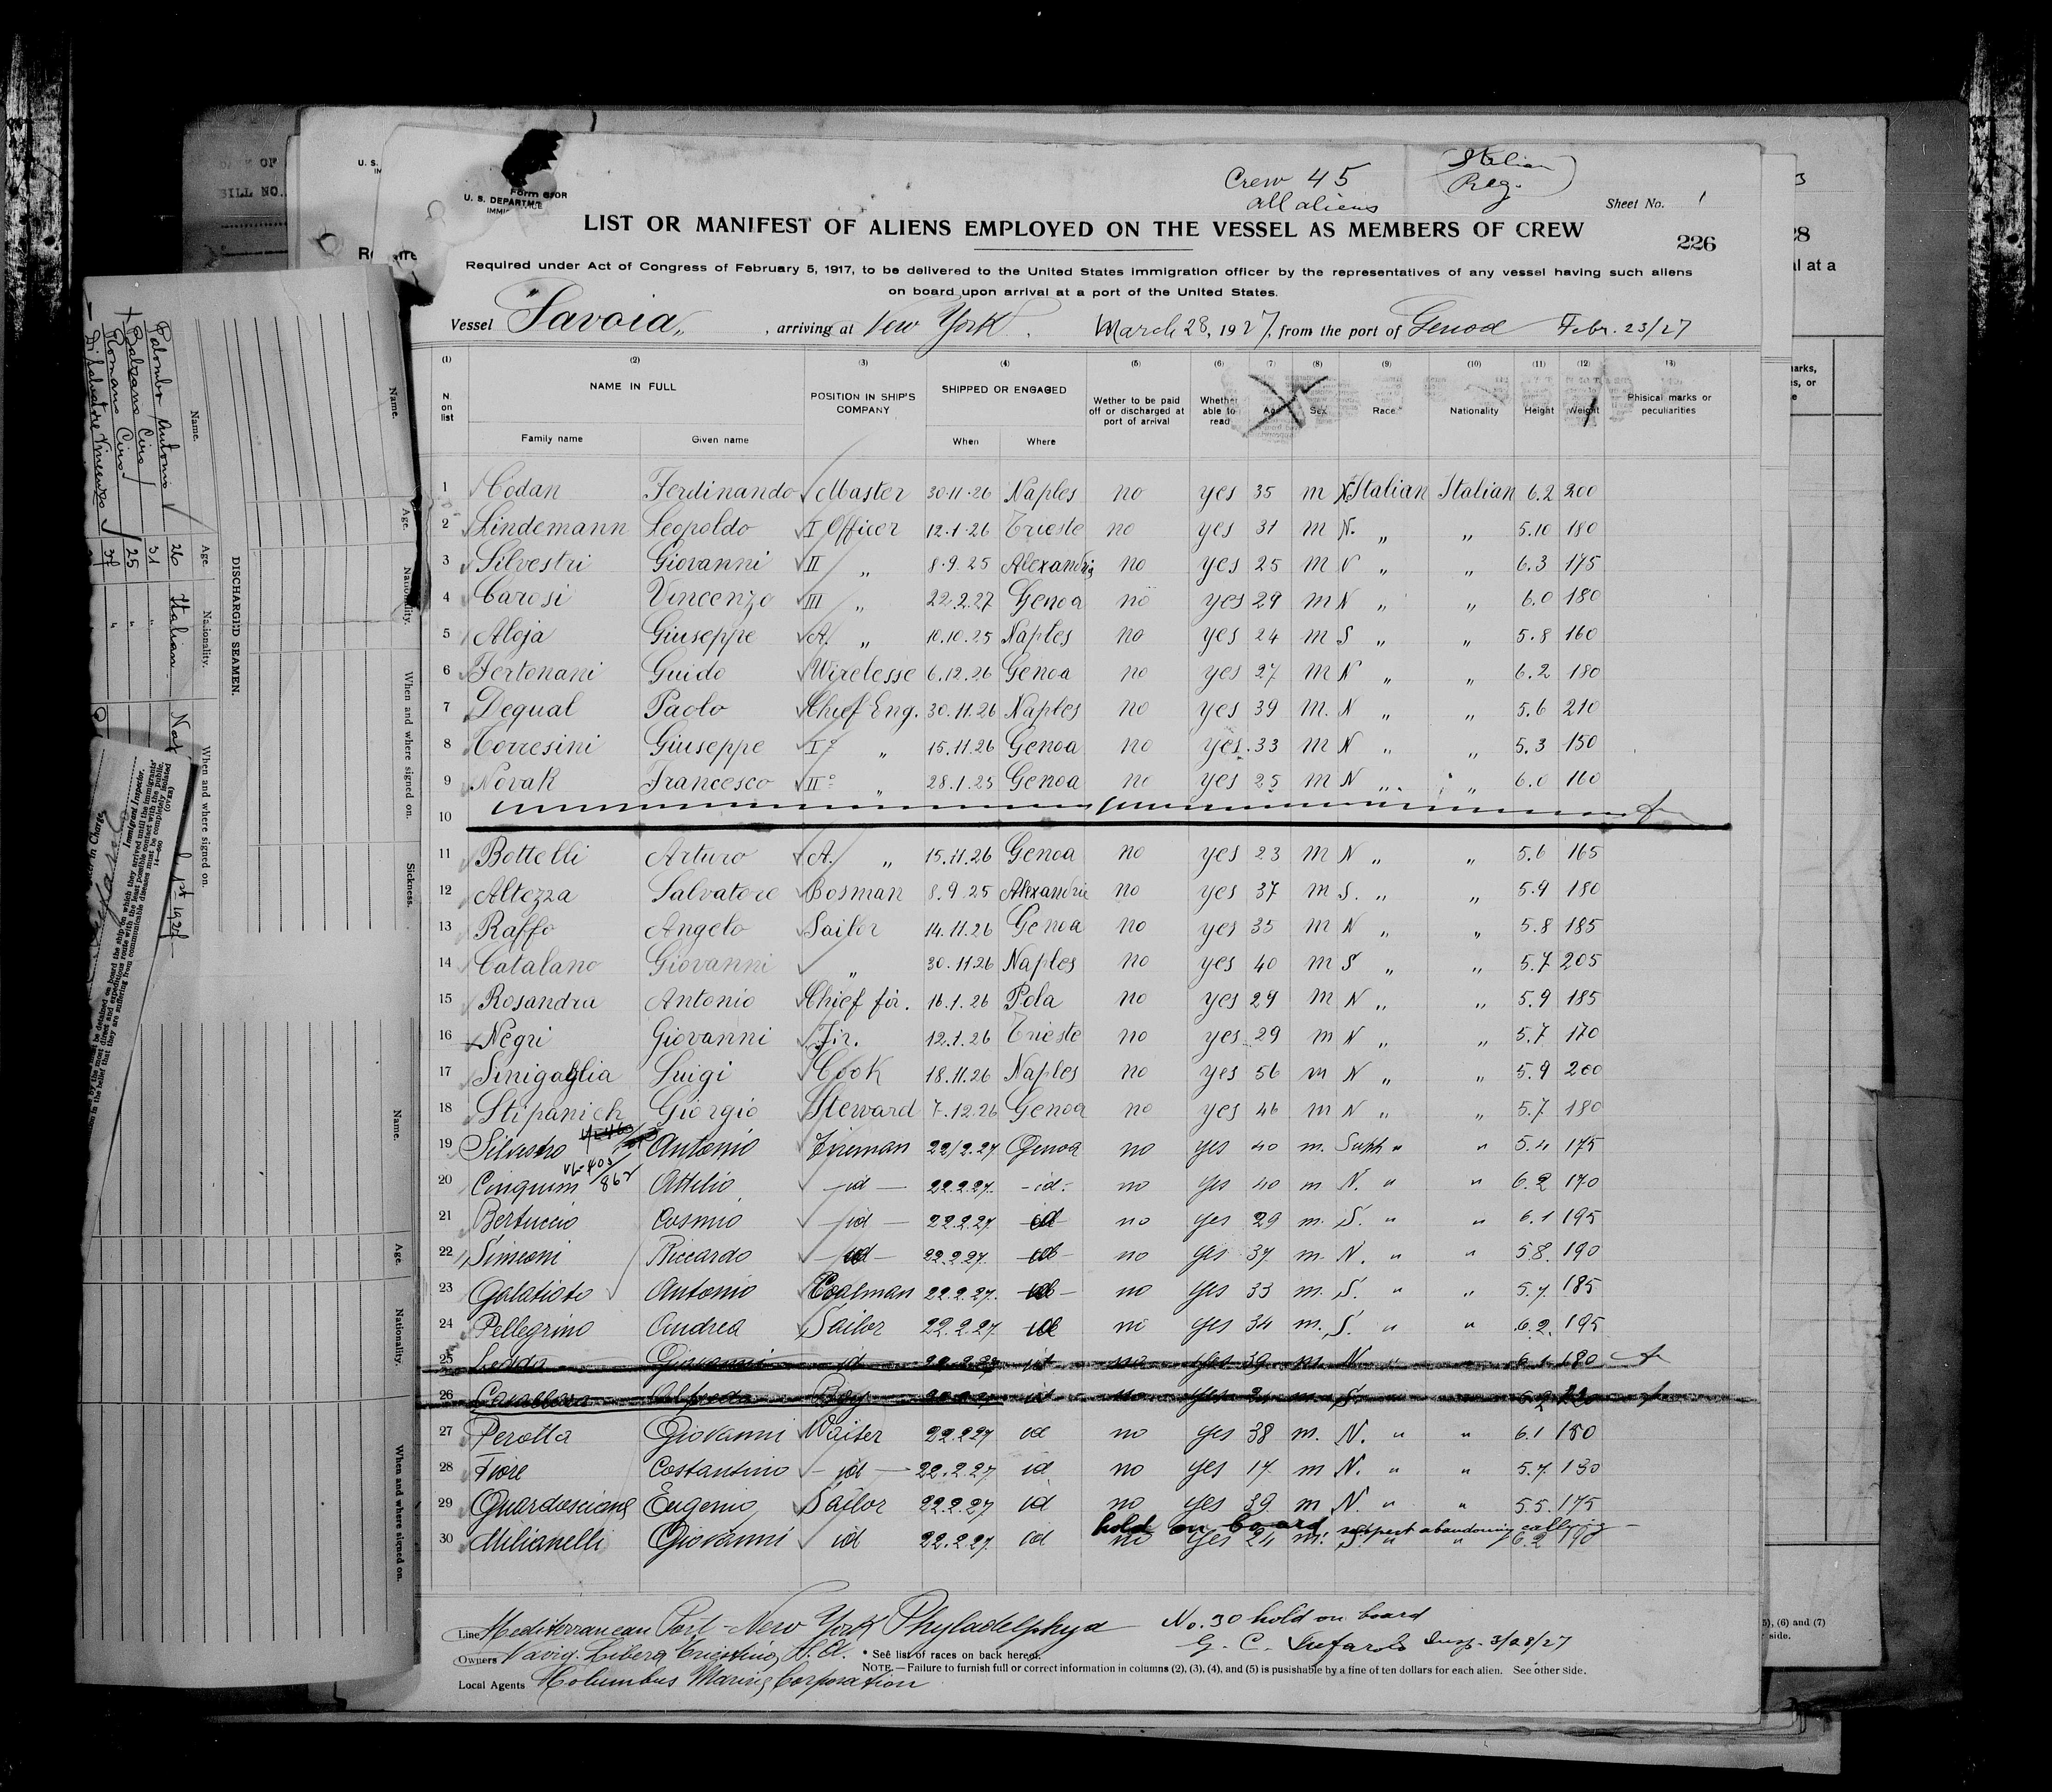 Crew 45
all aliens
Italian
Reg.
Sheet No. 1
U. S. DEPARTM
LIST OR MANIFEST OF ALIENS EMPLOYED ON THE VESSEL AS MEMBERS OF CREW
226
Required under Act of Congress of February 5, 1917, to be delivered to the United States immigration officer by the representatives of any vessel having such aliens
on board upon arrival at a port of the United States.
Vessel Savoia, arriving at New York. March 28, 1927, from the port of Genoa Febr. 23/27
(1) (2) (3) (4) (5) (6) (7) (8) (9) (10) (11) (12) (13)
N. on list NAME IN FULL POSITION IN SHIP'S COMPANY SHIPPED OR ENGAGED Wether to be paid off or discharged at port of arrival Whether able to read Age Sex Race.* Nationality Height Weight Phisical marks or peculiarities
Family name Given name When Where
1 Codan Ferdinando Master 30.11.26 Naples no yes 35 m N Italian Italian 6.2 200
2 Lindemann Leopoldo I Officer 12.1.26 Trieste no yes 31 m N. „ „ 5.10 180
3 Silvestri Giovanni II „ 8.9.25 Alexandria no yes 25 m N „ „ 6.3 175
4 Carosi Vincenzo III „ 22.2.27 Genoa no yes 29 m N „ „ 6.0 180
5 Aloja Giuseppe A. „ 10.10.25 Naples no yes 24 m S „ „ 5.8 160
6 Fertonani Guido Wirelesse 6.12.26 Genoa no yes 27 m N „ „ 6.2 180
7 Dequal Paolo Chief Eng. 30.11.26 Naples no yes 39 m. N „ „ 5.6 210
8 Torresini Giuseppe I° „ 15.11.26 Genoa no yes. 33 m N „ „ 5.3 150
9 Novak Francesco II° „ 28.1.25 Genoa no yes 25 m N „ „ 6.0 160
10
11 Bottelli Arturo A. „ 15.11.26 Genoa no yes 23 m N „ „ 5.6 165
12 Altezza Salvatore Bosman 8.9.25 Alexandria no yes 37 m S. „ „ 5.9 180
13 Raffo Angelo Sailor 14.11.26 Genoa no yes 35 m N „ „ 5.8 185
14 Catalano Giovanni „ 30.11.26 Naples no yes 40 m S „ „ 5.7 205
15 Rosandra Antonio Chief fir. 16.1.26 Pola no yes 29 m N „ „ 5.9 185
16 Negri Giovanni Fir. 12.1.26 Trieste no yes 29 m N „ „ 5.7 170
17 Sinigaglia Luigi Cook 18.11.26 Naples no yes 56 m N „ „ 5.9 200
18 Stipanich Giorgio Steward 7.12.26 Genoa no yes 46 m N „ „ 5.7 180
19 Silvestro Antonio Fireman 22/2.27 Genoa no yes 40 m. South " " 5.4 175
20 Cinquini Attilio id 22.2.27. id. no yes 40 m N. " " 6.2 170
21 Bertuccio Cosmio id 22.2.27. id no yes 29 m. S. " " 6.1 195
22 Simeoni Riccardo id 22.2.27. id no yes 37 m. N. " " 5.8. 190
23 Galatioto Antonio Coalman 22.2.27. id no yes 33 m. S. " " 5.7. 185
24 Pellegrino Andrea Sailor 22.2.27 id no yes 34 m. S. " " 6.2. 195
25 Ledda Giovanni id 22.2.27 id no yes 39 m. N. " " 6.1 180
26 Alfredo Boy id no yes 21 m S.
27 Perotta Giovanni Waiter 22.2.27 id no yes 38 m. N. " " 6.1 180
28 Fiore Costantino id 22.2.27 id no yes 17 m N. " " 5.7. 130
29 Guardascione Eugenio Sailor 22.2.27 id no yes 39 m N. " " 5.5. 175
hold on board, suspect abandoning calling
30 Milianelli Giovanni id 22.2.27. id no yes 24 m. S. " " 6.2 190
Line Mediterranean Port - New York Phyladelphya
No. 30 hold on board
Owners Navig. Libera Triestina S.A.
G. C. Insp. 3/28/27
* See list of races on back hereof.
NOTE.—Failure to furnish full or correct information in columns (2), (3), (4), and (5) is pusishable by a fine of ten dollars for each alien. See other side.
Local Agents Columbus Marine Corporation
DISCHARGED SEAMEN.
Name. Age. Nationality. When and where signed on. Sickness.
Palombo Antonio 26 Italian
Balzano Ciro 31 "
Romano Ciro 25 "
Di Salvatore Vincenzo 37 "
Name. Age. Nationality. When and where signed on.
Immigrant Inspector.